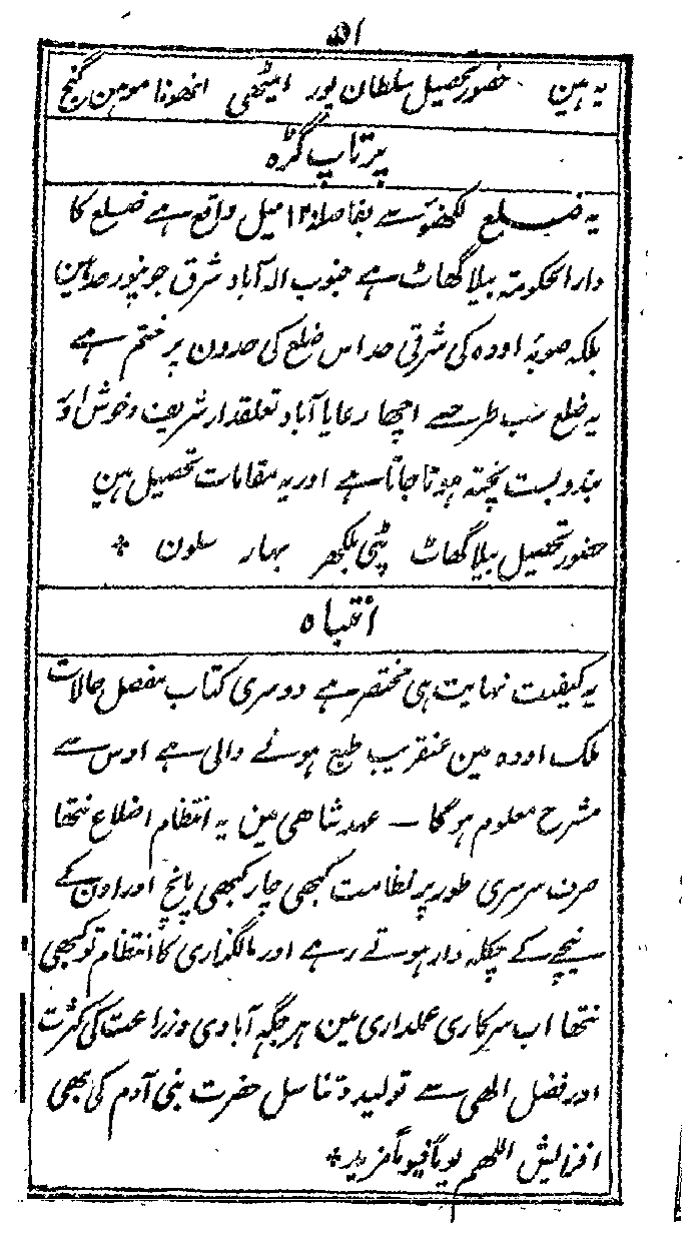 ۵۱
یہ ہین حضور تحصیل سلطان پور امیٹھی انھونا موہن گنج
پرتاپ گڑہ
یہ ضلع لکھنؤ سے بفاصلہ ۱۲ میل واقع ہے ضلع کا
دارالحکومتہ بیلا گھاٹ ہے جنوب الہ آباد شرق جونپور حد این
بلکہ صوبۂ اودہ کی شرقی حد اس ضلع کی حدون پر ختم ہے
یہ ضلع سب طرحسے اچھا رعایا آباد تعلقدار شریف و خوش اوَ
بندوبست پختہ ہوتا جاتا ہے اور یہ مقامات تحصیل ہین
حضور تحصیل بیلا گھاٹ پٹی بلکھر بہار سلون
انتباہ
یہ کیفیت نہایت ہی مختصر ہے دوسری کتاب مفصل حالات
ملک اودہ مین عنقریب طبع ہونے والی ہے اوس سے
مشرح معلوم ہوگا ـ عہد شاھی مین یہ انتظام اضلاع نتھا
صرف سرسری طور پر نظامت کبھی چار کبھی پانچ اور اون کے
نیچے کے چکلہ دار ہوتے رہے اور مالگذاری کا انتظام تو کبھی
نتھا اب سرکاری عملداری مین ہر جگہ آبادی و زراعت کی کثرت
اور فضل الھی سے تولید و تناسل حضرت بنی آدم کی بھی
افزایش اللھم یوماً فیوماً مزید